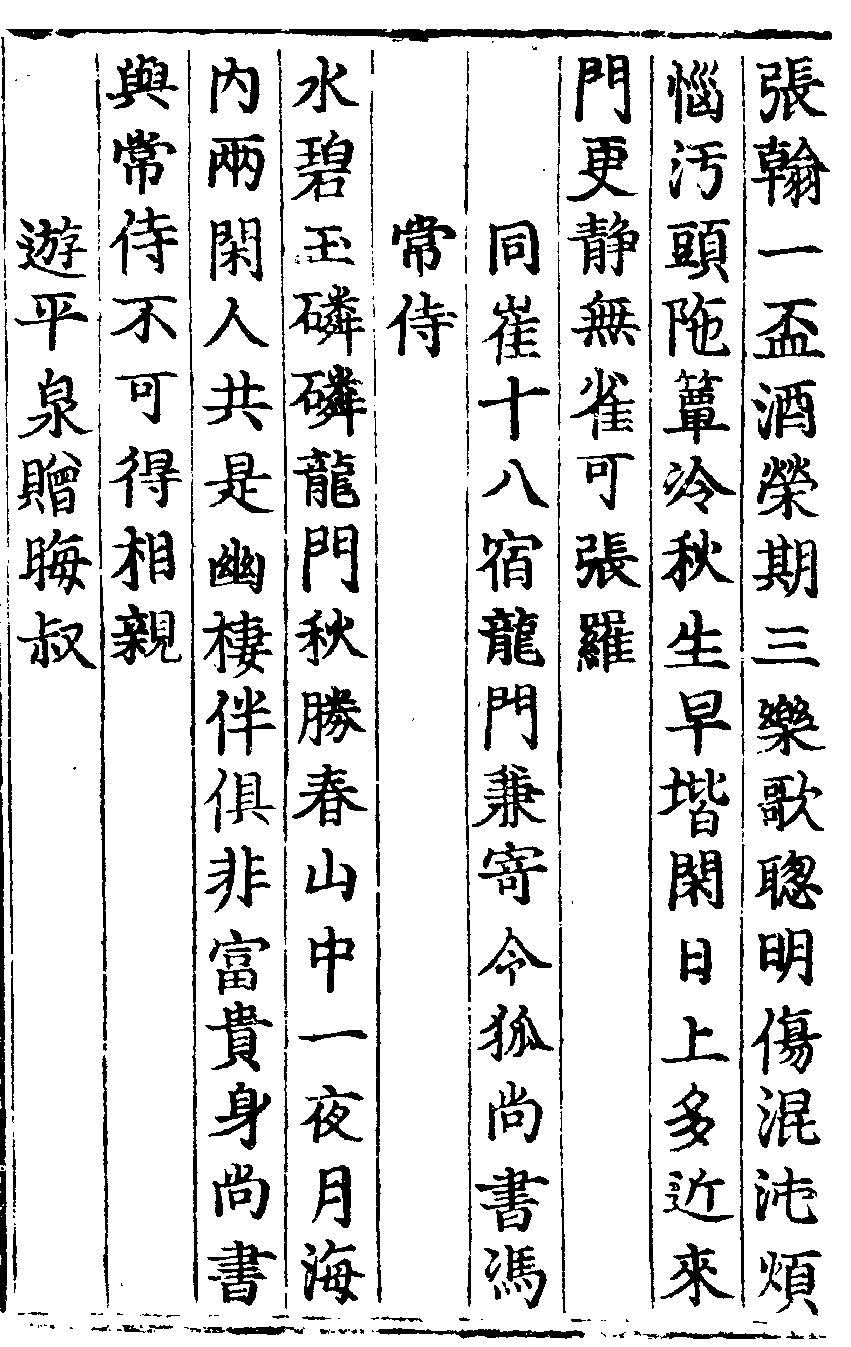 張翰一盃酒榮期三樂歌聦明傷混沌煩
惱汚頭陁簟冷秋生早堦閑日上多近來
門更静無雀可張羅
同崔十八宿龍門兼寄令狐尚書馮
常侍
水碧玉磷磷龍門秋勝春山中一夜月海
内兩閑人共是幽棲伴俱非富貴身尚書
與常侍不可得相親
遊平泉贈晦叔